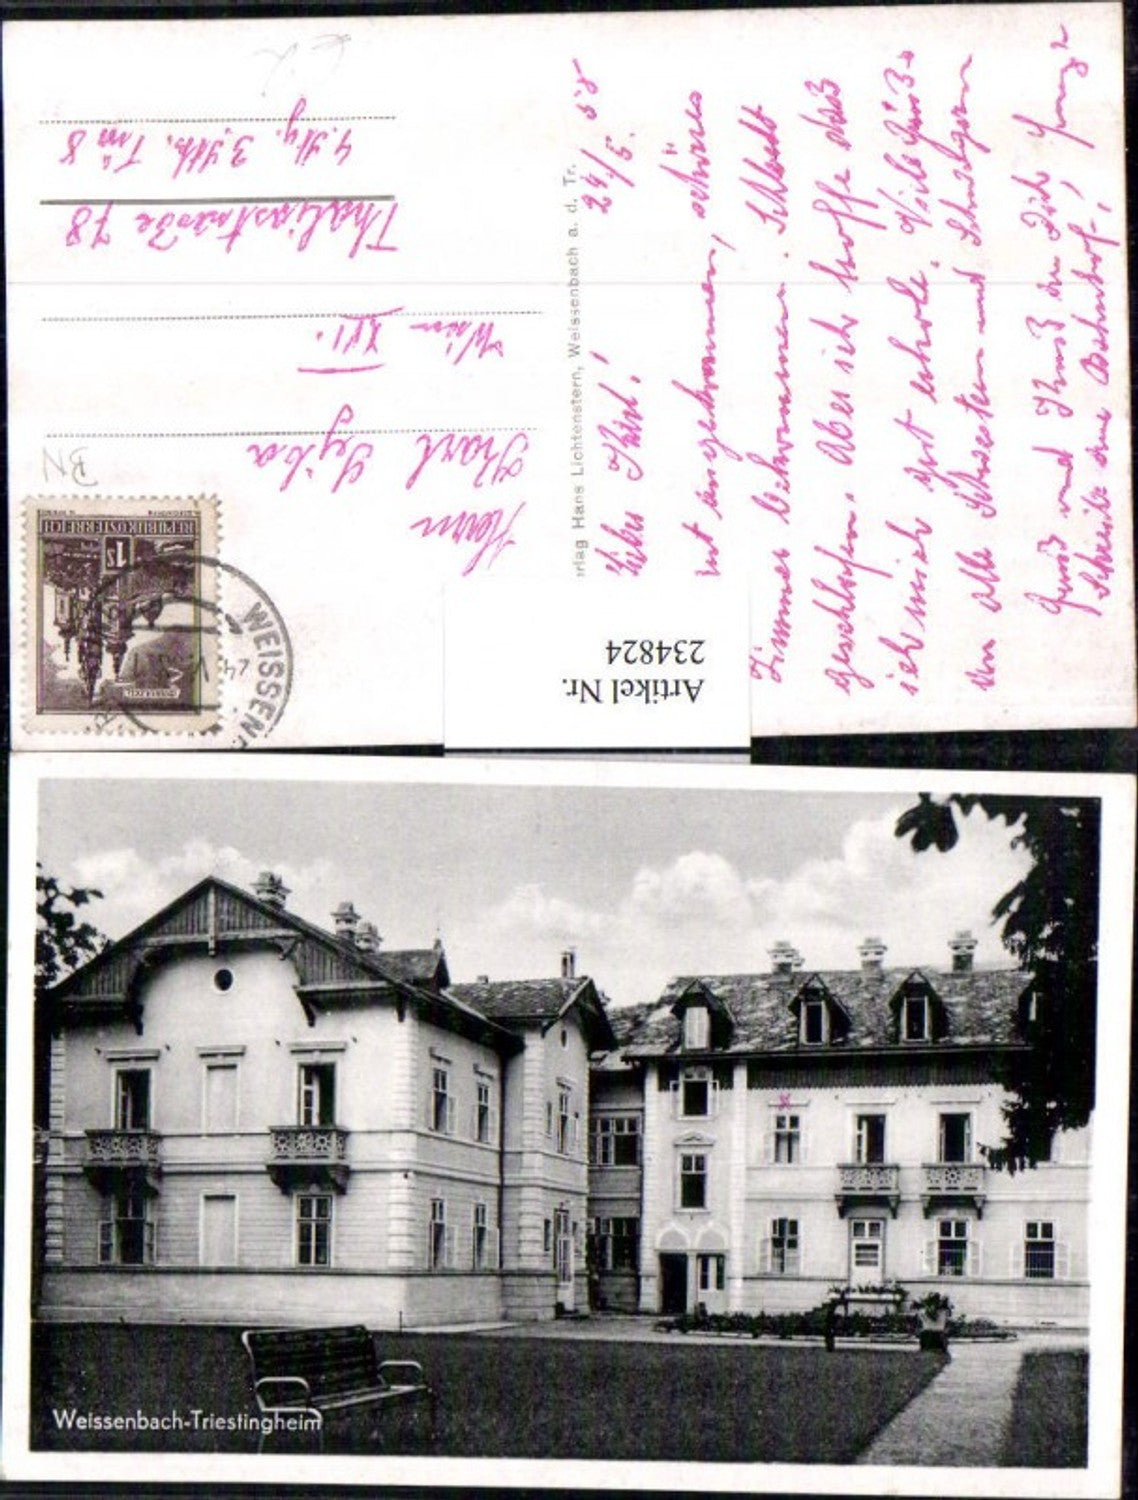 Herrn
Karl
Wien XVI.
Thaliastrasse 78
4. Stg. 3. Stk. Tür 8
BN
REPUBLIK ÖSTERREICH
1s
MARIAZELL
WEISSEN
Verlag Hans Lichtenstern, Weissenbach a. d. Tr.
24/5. 58
Lieber Karl!
Gut angekommen, schönes
Zimmer bekommen. Schlecht
geschlafen. Aber ich hoffe daß
ich mich gut erhole. Viele Grüße
an alle Schwestern und
Gruß und Kuß an Dich
Schreibe am Bahnhof!
Artikel Nr.
234824
Weissenbach-Triestingheim